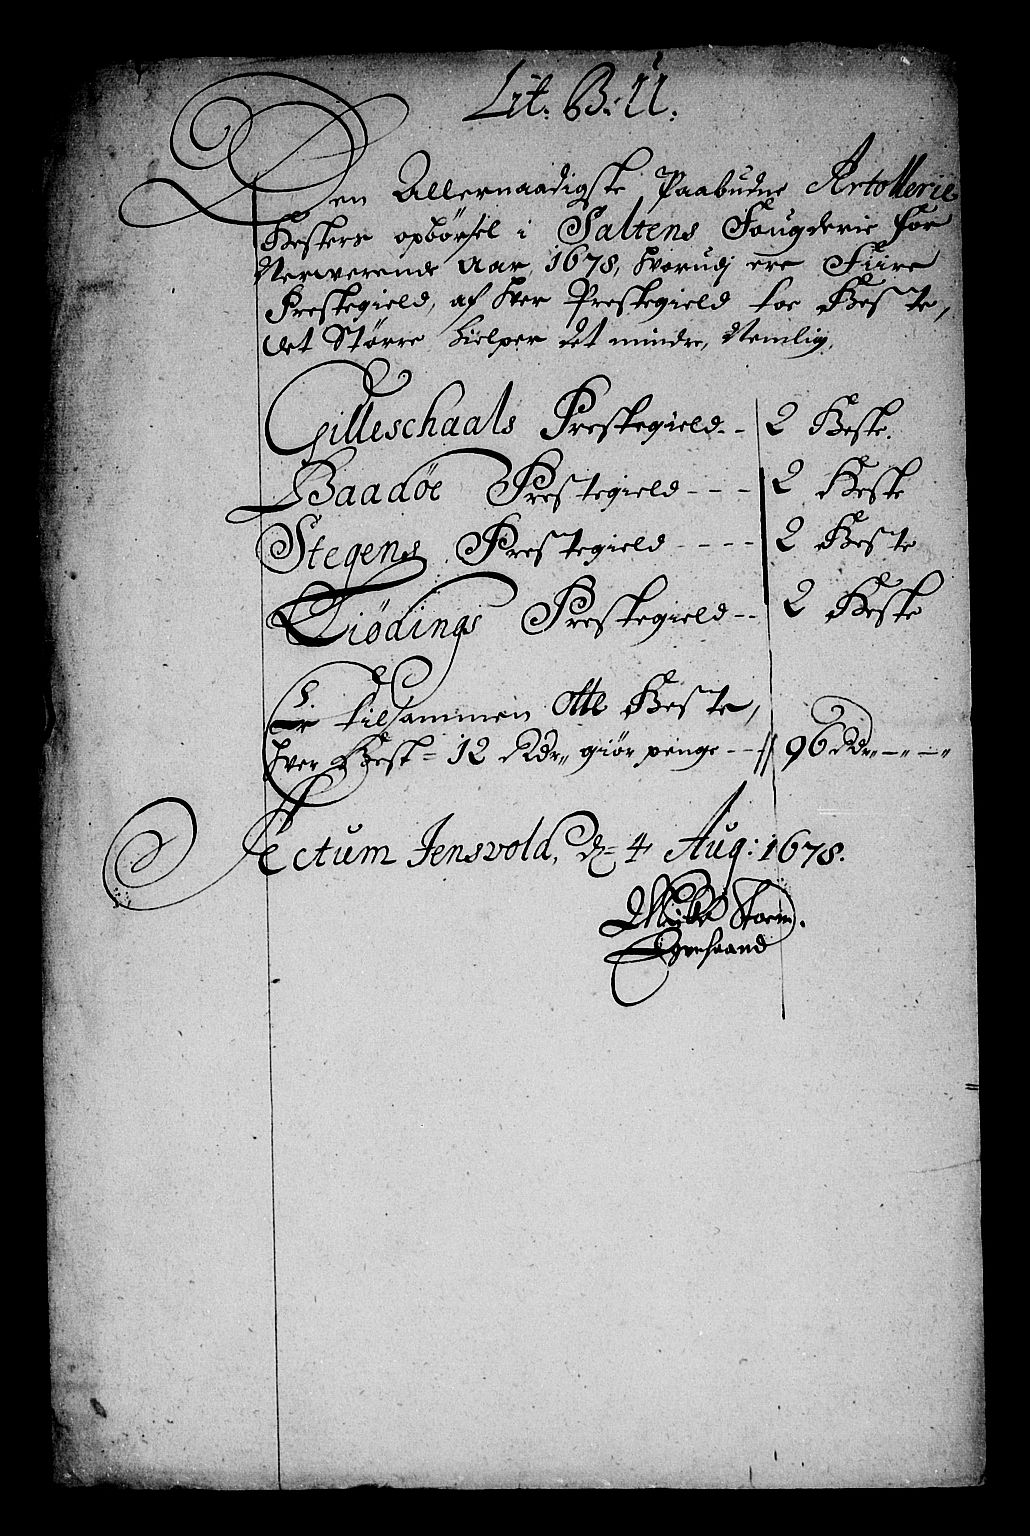 Lit. B: U.
Den Allernaadigste Paabudne Artollerie
Hesters opbörsel i Saltens Fougderie for
Nerwerende Aar 1678, hvorudj ere Fiire
Prestegield, af hver Prestegield toe Heste,
det Större hielper det mindre, Nemlig,
Gilleschaals Prestegield - - 2 Heste.
Baadöe Prestegield - - - 2 Heste
Stegens Prestegield - - - - 2 Heste
Schiödings Prestegield - - 2 Heste
Er tilsammen Otte Heste,
hver Hest = 12 Rdr giör penge - - // 96 Rdr - - -
Actum Jensvold, d. 4 Aug: 1678.
Storm.
Egenhaand